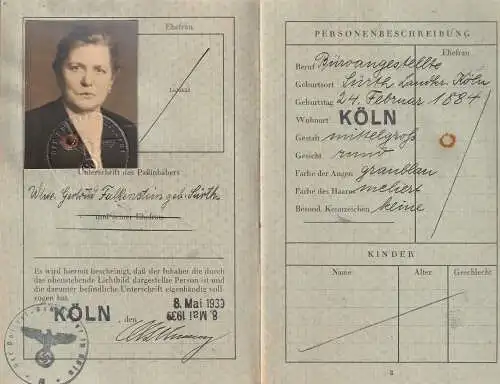 Ehefrau
Unterschrift des Paßinhabers
Wwe. Falkenstein geb. Sürth
und seiner Ehefrau
Es wird hiermit bescheinigt, daß der Inhaber die durch
das obenstehende Lichtbild dargestellte Person ist und
die darunter befindliche Unterschrift eigenhändig voll-
zogen hat.
8. Mai 1939
KÖLN, den 8. Mai 1939
PERSONENBESCHREIBUNG
Ehefrau
Beruf Büroangestellte
Geburtsort Sürth Landkr. Köln
Geburtstag 24. Februar 1884
Wohnort KÖLN
Gestalt mittelgroß
Gesicht rund
Farbe der Augen graublau
Farbe des Haares meliert
Besond. Kennzeichen keine
KINDER
Name Alter Geschlecht